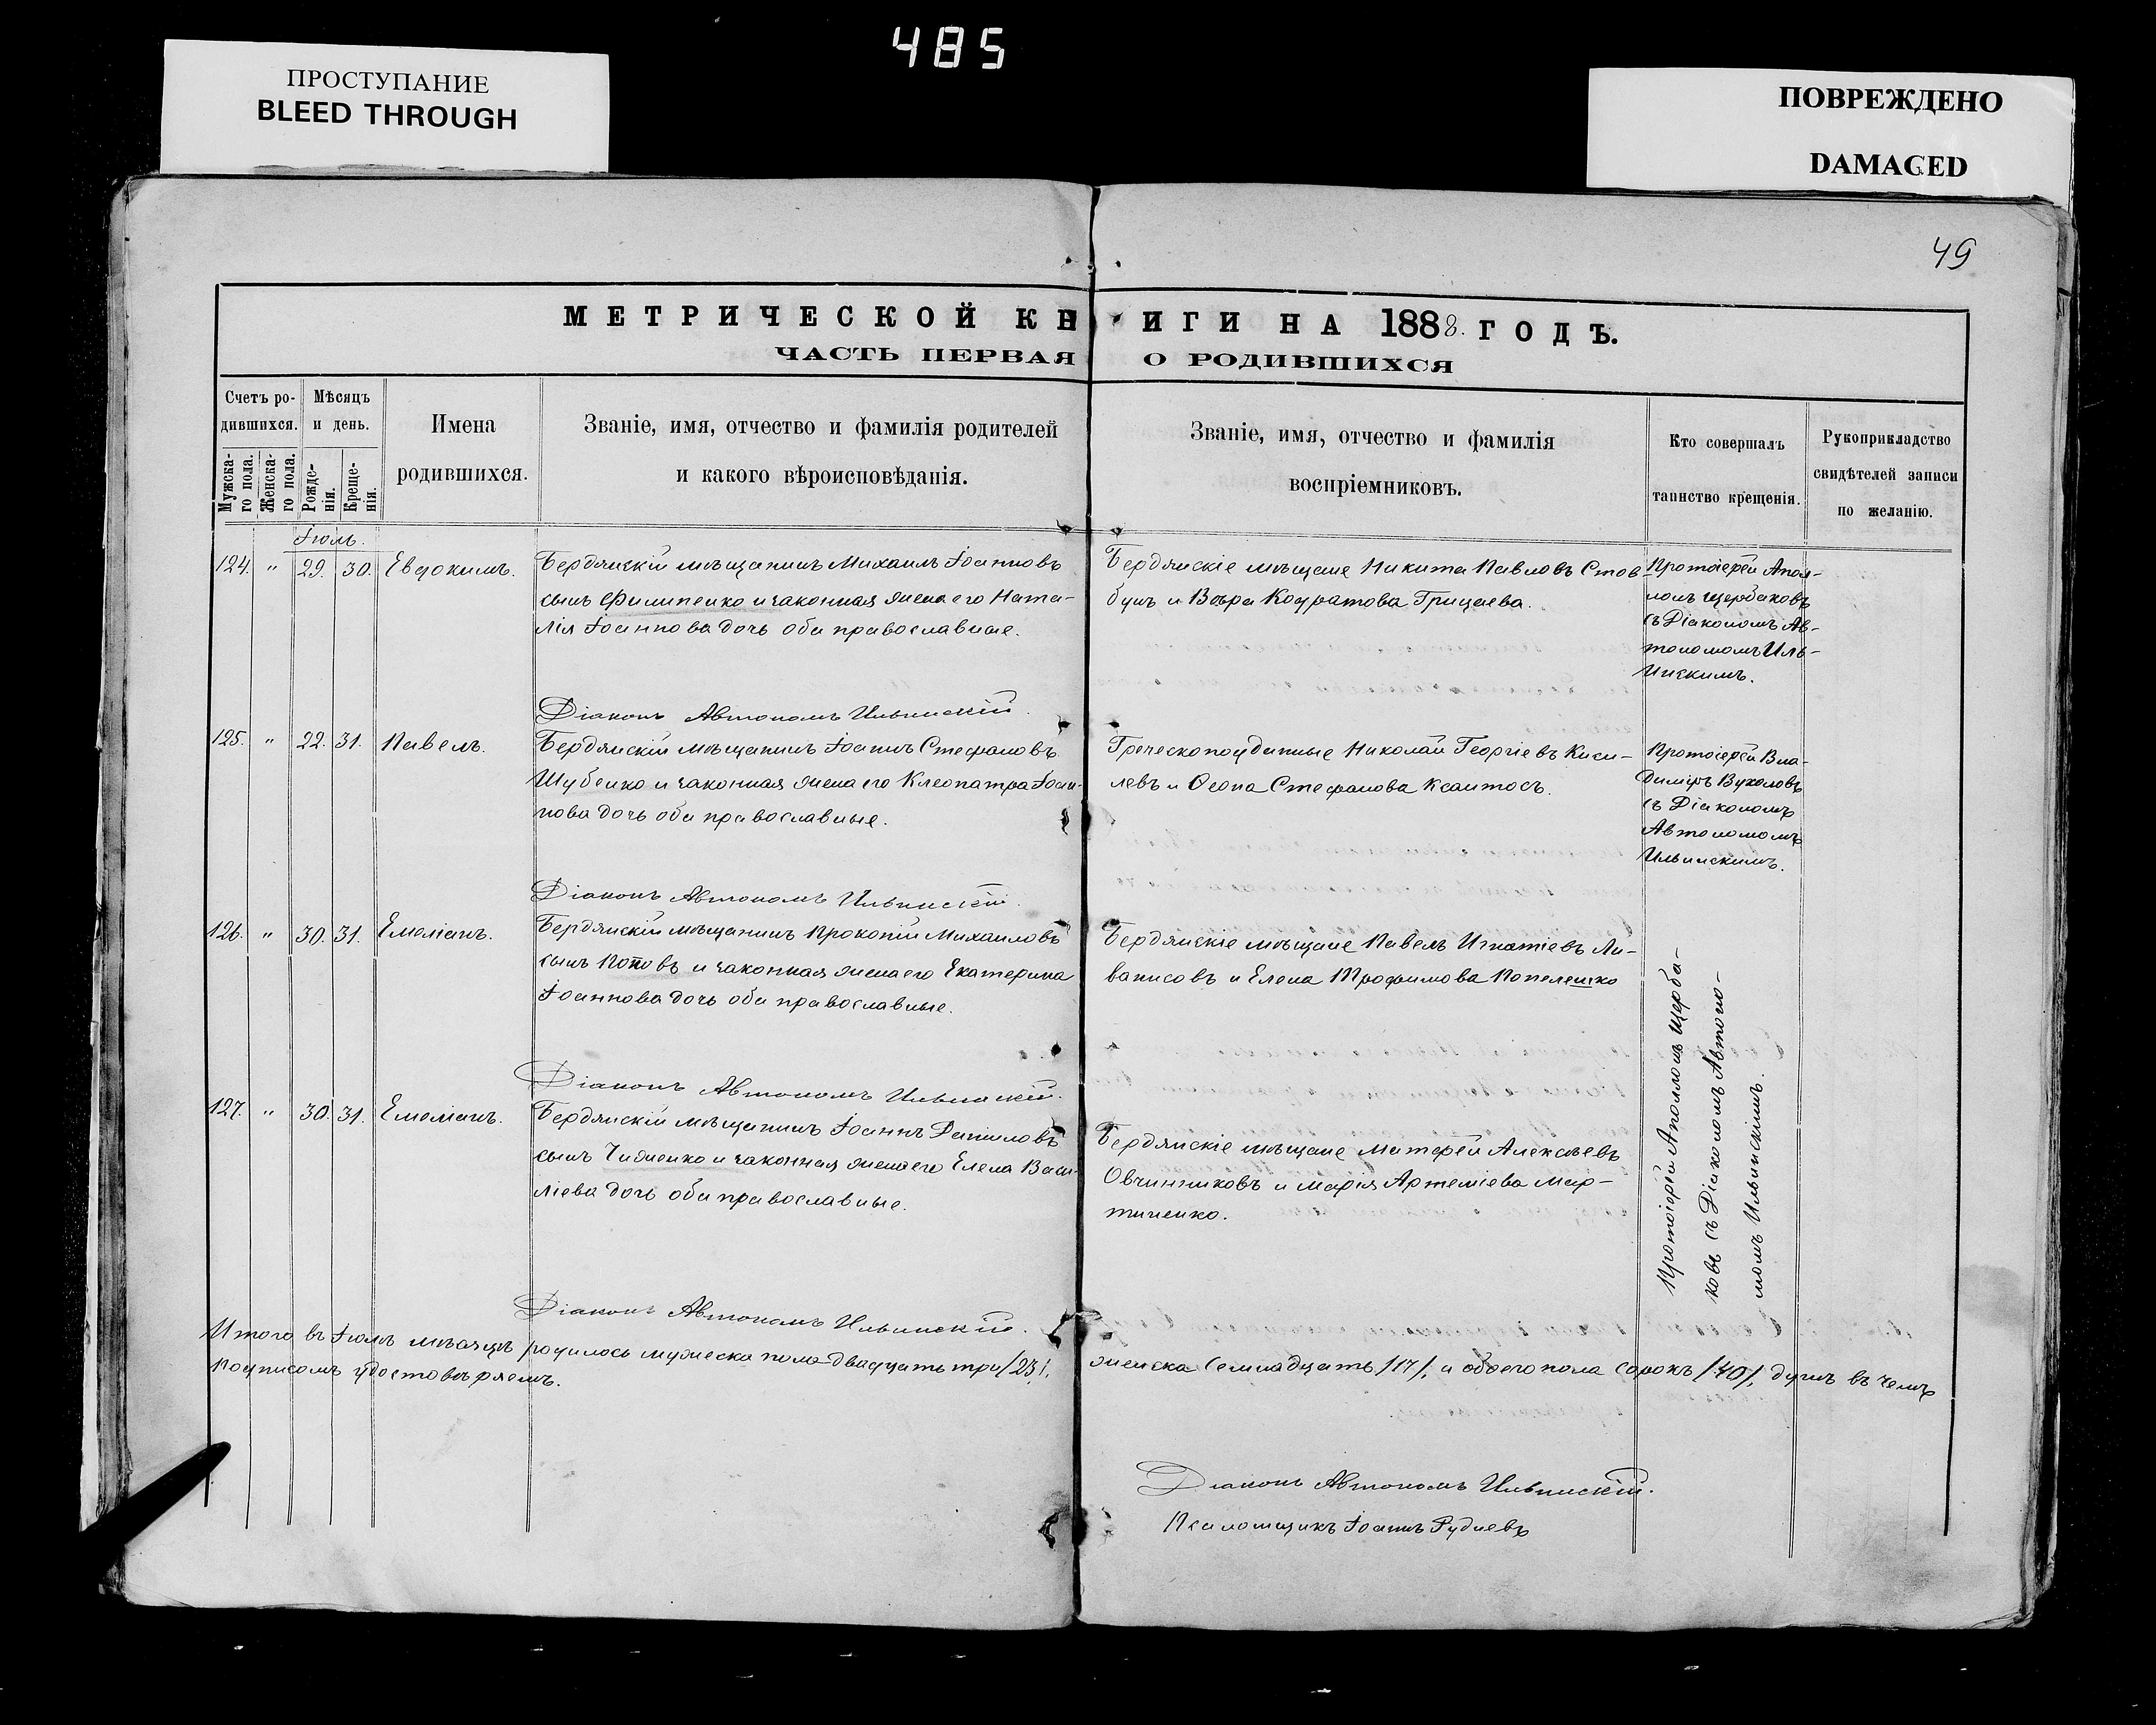 485
ПРОСТУПАНИЕ
BLEED THROUGH
ПОВРЕЖДЕНО
DAMAGED
49
МЕТРИЧЕСКОЙ КНИГИ НА 1888. ГОДЪ.
ЧАСТЬ ПЕРВАЯ О РОДИВШИХСЯ
Счетъ ро-
дившихся.
Мужска-
го пола.
Женска-
го пола.
Мѣсяцъ
и день.
Рожде-
нія.
Креще-
нія.
Имена
родившихся.
Званіе, имя, отчество и фамилія родителей
и какого вѣроисповѣданія.
Званіе, имя, отчество и фамилія
воспріемниковъ.
Кто совершалъ
таинство крещенія.
Рукоприкладство
свидѣтелей записи
по желанію.
Іюль.
124. " 29. 30. Евдокимъ.
Бердянскій мѣщанинъ Михаилъ Іоанновъ
сынъ Филипенко и законная жена его Ната-
лія Іоаннова дочь оба православные.
Бердянскіе мѣщане Никита Павловъ Стов-
бунъ и Вѣра Кодратова Грицаева.
Протоіерей Апол-
лонъ Щербаковъ
съ Діакономъ Ав-
тономомъ Иль-
инскимъ.
Діаконъ Автономъ Ильинскій.
125. " 22. 31. Павелъ.
Бердянскій мѣщанинъ Іоаннъ Стефановъ
Шубенко и законная жена его Клеопатра Іоан-
нова дочь оба православные.
Греческоподданные Николай Георгіевъ Киси-
левъ и Ѳеона Стефанова Ксантосъ.
Протоіерей Вла-
диміръ Вуколовъ
съ Діакономъ
Автономомъ
Ильинскимъ.
Діаконъ Автономъ Ильинскій.
126. " 30. 31. Емеліанъ.
Бердянскій мѣщанинъ Прокопій Михаиловъ
сынъ Поповъ и законная жена его Екатерина
Іоаннова дочь оба православные.
Бердянскіе мѣщане Павелъ Игнатіевъ Ли-
ванисовъ и Елена Трофимова Попеленко
Протоіерей Аполлонъ Щерба-
ковъ съ Діакономъ Автоно-
момъ Ильинскимъ.
Діаконъ Автономъ Ильинскій.
127. " 30. 31. Емеліанъ.
Бердянскій мѣщанинъ Іоаннъ Даниловъ
сынъ Чиженко и законная жена его Елена Васи-
ліева дочь оба православные.
Бердянскіе мѣщане Матфей Алексѣевъ
Овчинниковъ и Марія Артеміева Мар-
тиненко.
Діаконъ Автономъ Ильинскій.
Итого въ Іюлѣ мѣсяцѣ родилось мужеска пола двадцать три /23/, женска семнадцать /17/, и обоего пола сорокъ /40/, душъ въ чемъ
подписомъ удостовѣряемъ.
Діаконъ Автономъ Ильинскій.
Псаломщикъ Іоаннъ Рудневъ